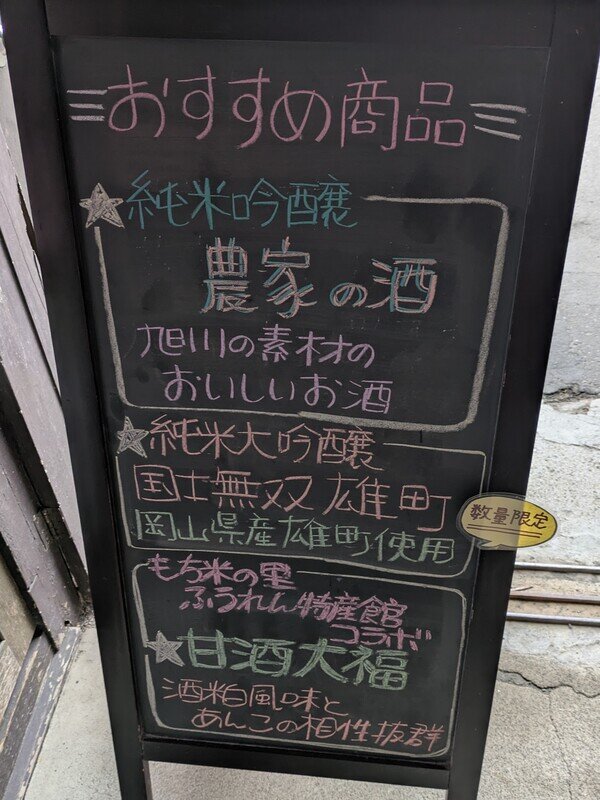 おすすめ商品
★純米吟醸
農家の酒
旭川の素材の
おいしいお酒
★純米大吟醸
国士無双 雄町
数量限定
岡山県産雄町使用
もち米の里
ふうれん特産館
コラボ
★甘酒大福
酒粕風味と
あんこの相性抜群